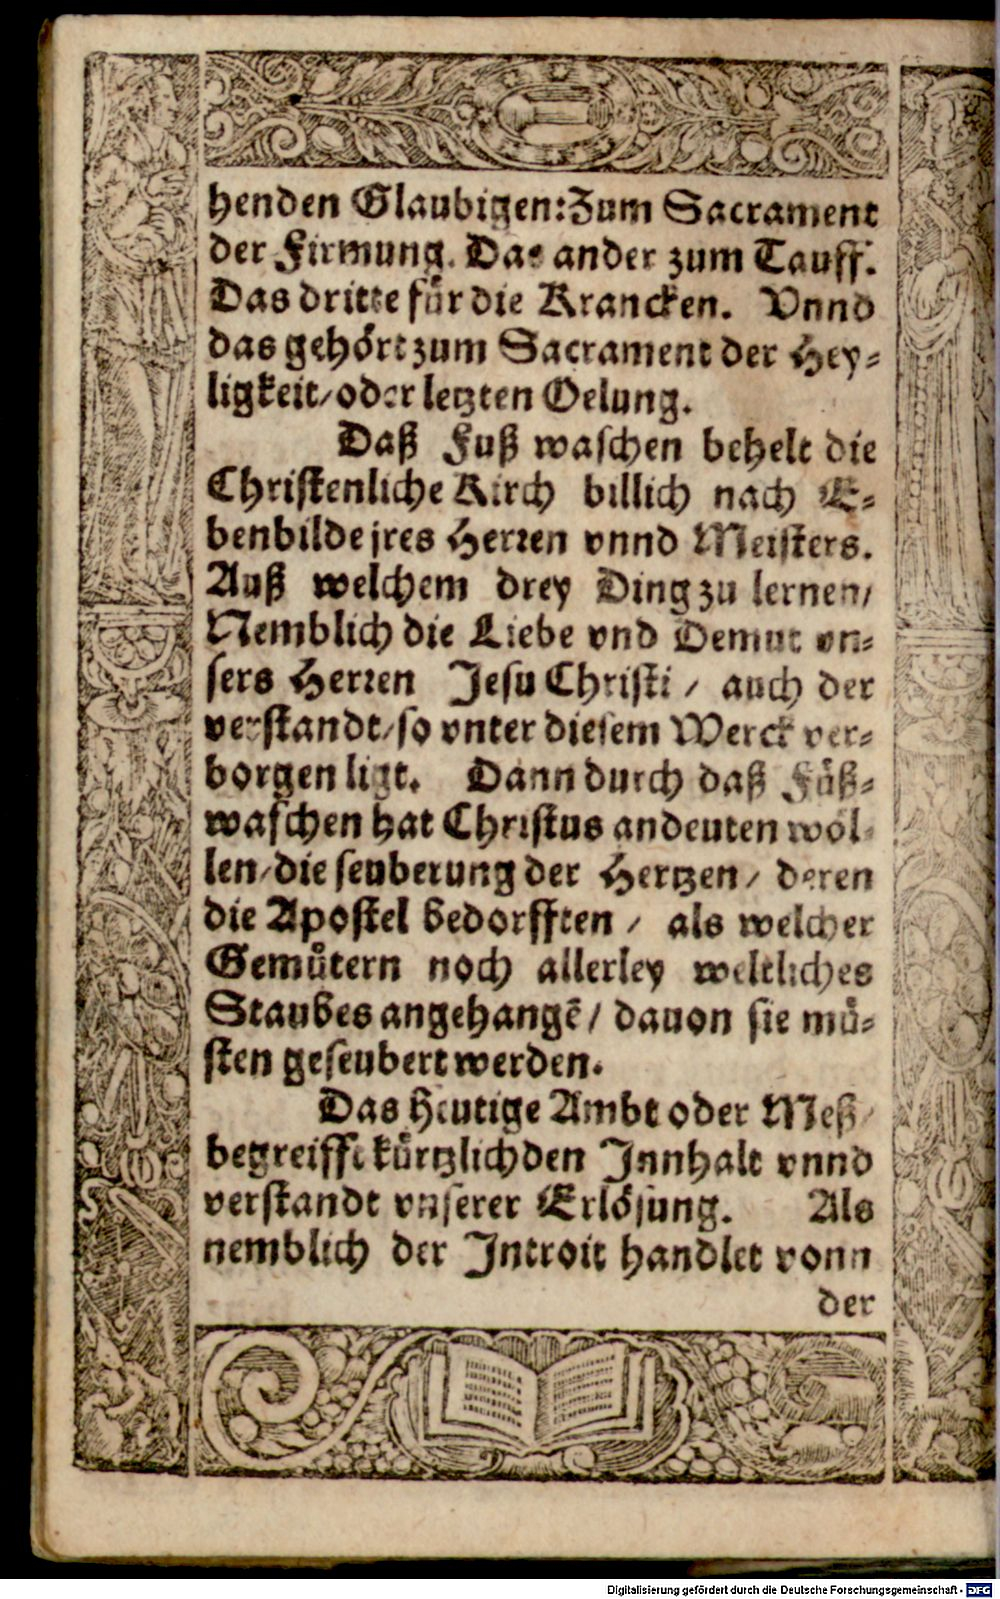 henden Glaubigen: Zum Sacrament
der Firmung. Das ander zum Tauff.
Das dritte für die Krancken. Vnnd
das gehört zum Sacrament der Hey-
ligkeit/ oder letzten Oelung.
Daß Fuß waschen behelt die
Christenliche Kirch billich nach E-
benbilde jres Herren vnnd Meisters.
Auß welchem drey Ding zu lernen/
Nemblich die Liebe vnd Demut vn-
sers Herren Jesu Christi / auch der
verstandt/ so vnter diesem Werck ver-
borgen ligt. Dann durch daß Füß-
waschen hat Christus andeuten wöl-
len/ die seuberung der Hertzen/ deren
die Apostel bedorfften / als welcher
Gemütern noch allerley weltliches
Staubes angehangē/ dauon sie mü-
sten geseubert werden.
Das heutige Ambt oder Meß/
begreifft kürtzlich den Innhalt vnnd
verstandt vnserer Erlösung. Als
nemblich der Introit handlet vonn
der
Digitalisierung gefördert durch die Deutsche Forschungsgemeinschaft - DFG